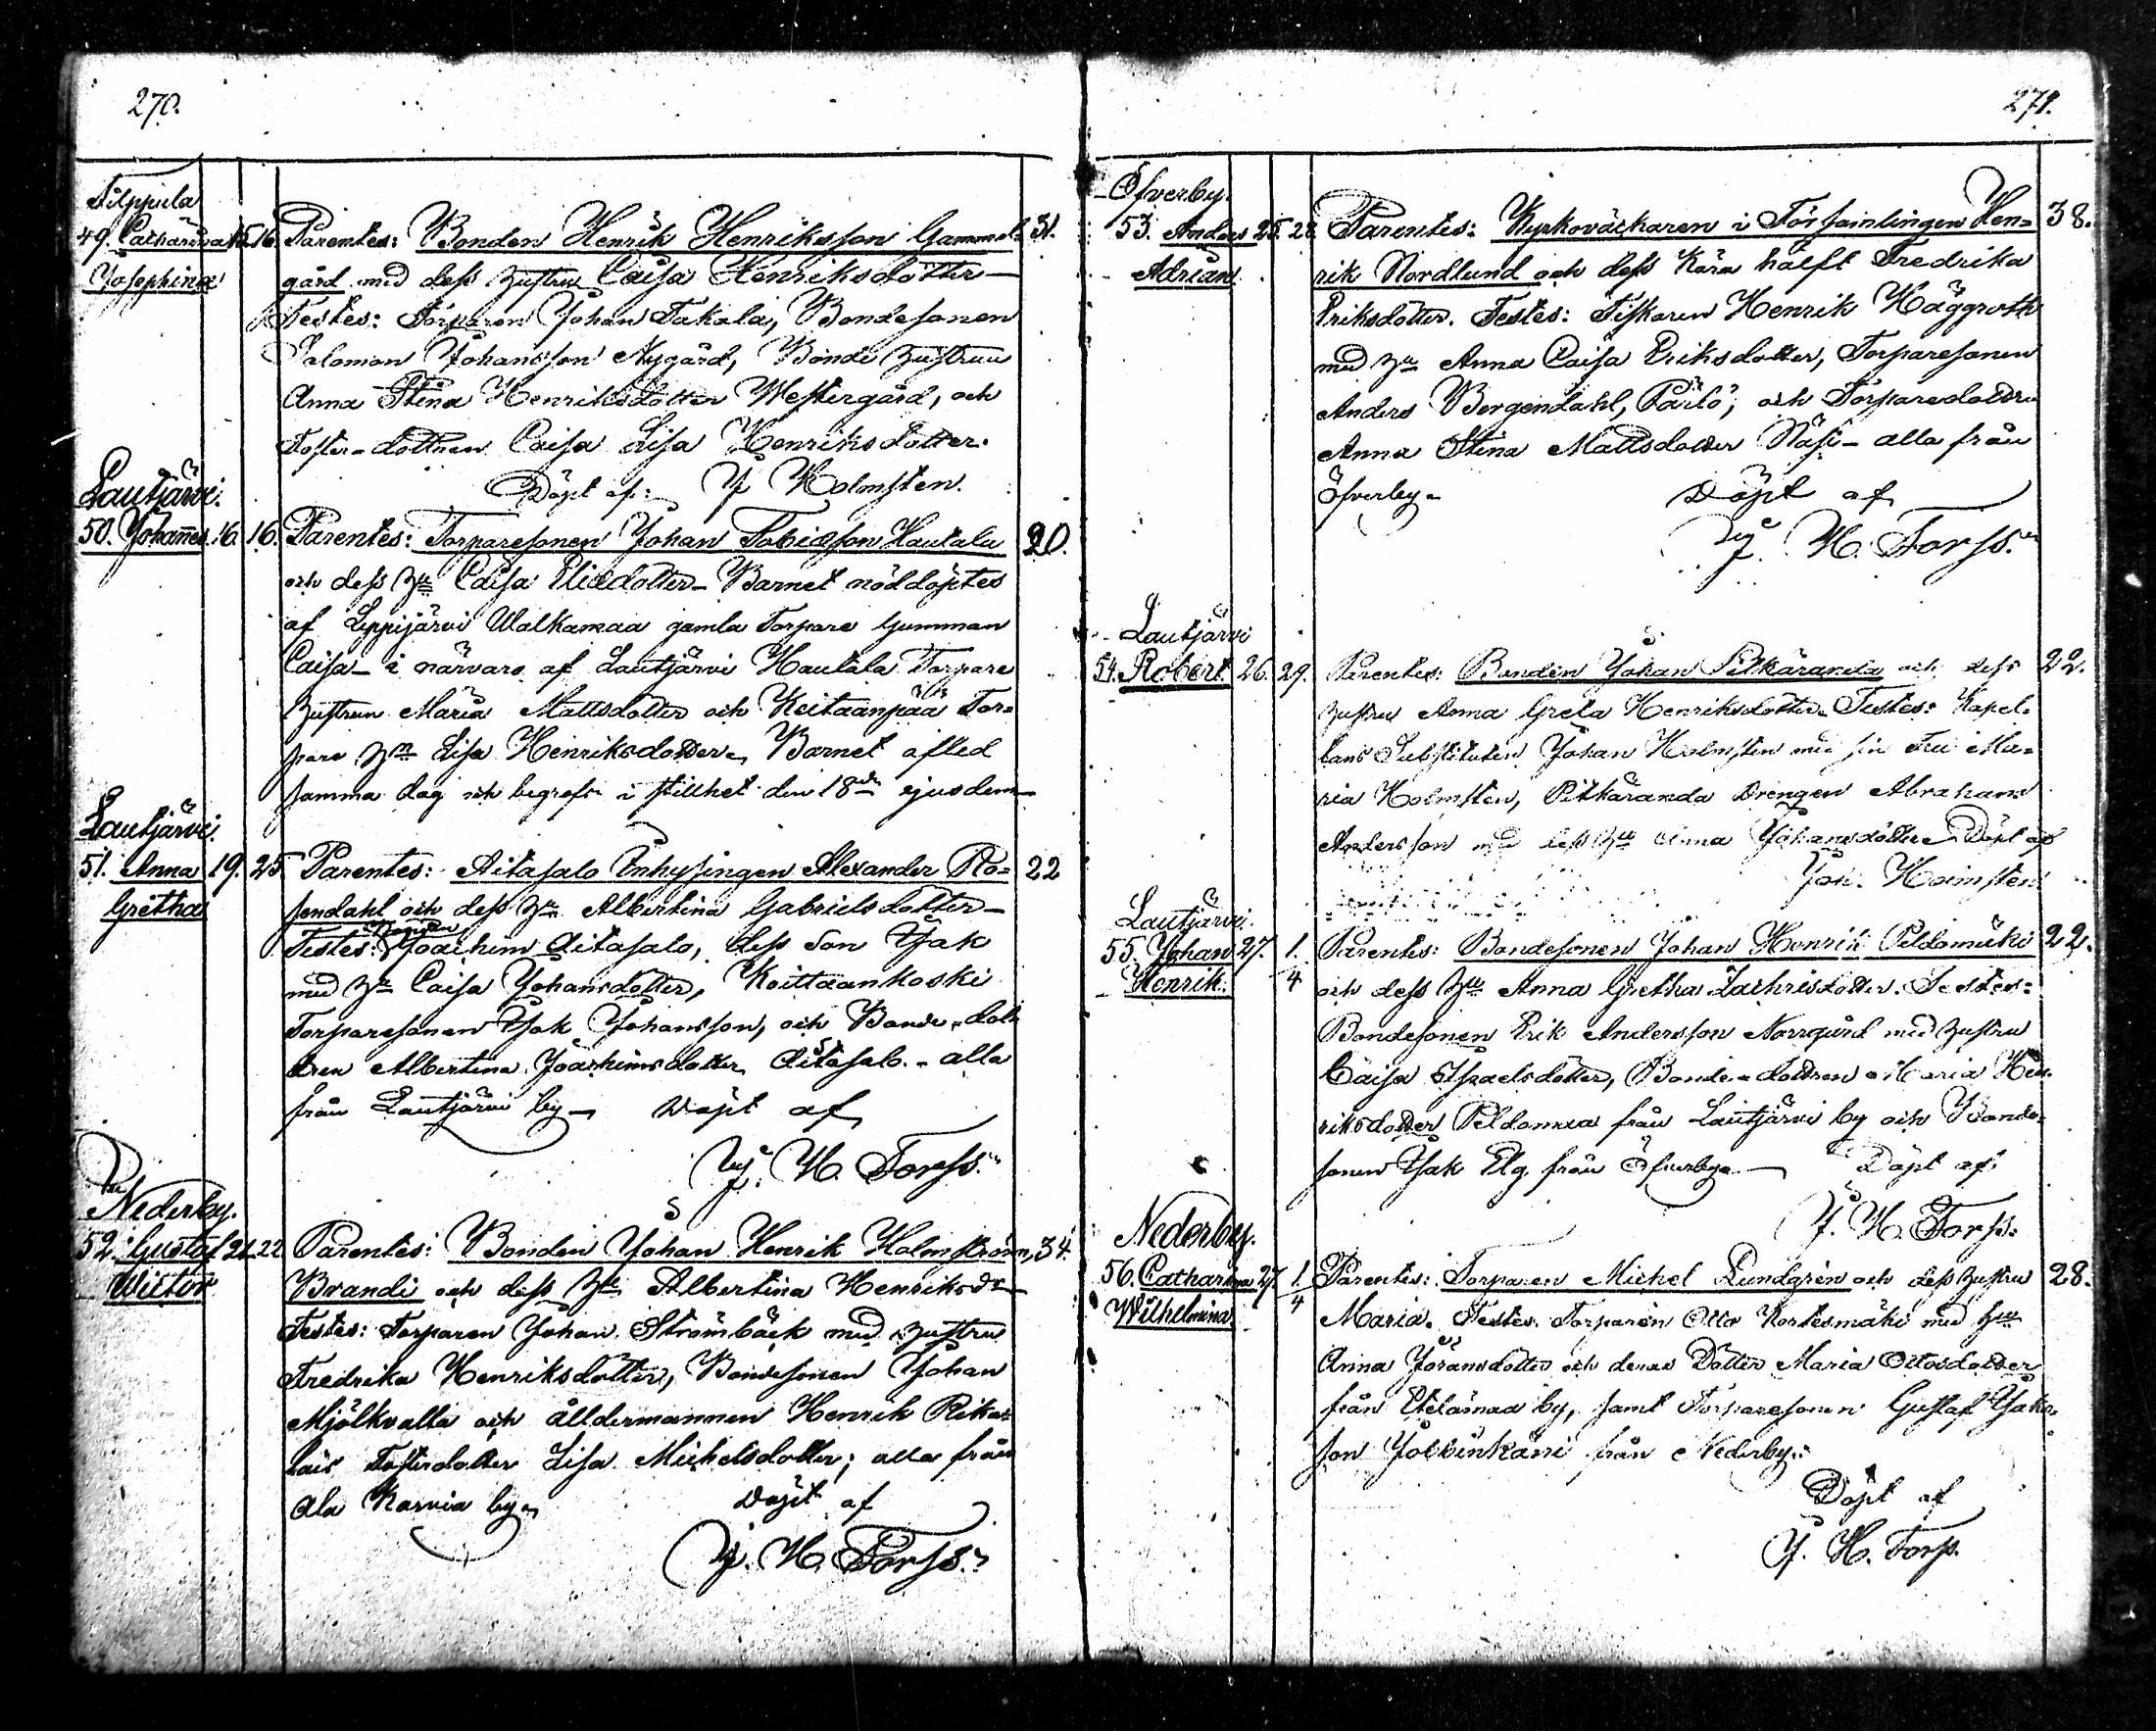 270.
Filppula
49. Catharina 15. 16. Parentes: Bonden Henrik Henriksson Gammel- 31.
Josephina gård med dess hustru Caisa Henriksdotter
Testes: Torparen Johan Takala, Bondesonen
Salomon Johansson Nygård, Bonde hustrun
Anna Stina Henriksdotter Westergård, och
Foster-dottren Caisa Lisa Henriksdotter.
Döpt af: J Holmsten.
Lautjärvi.
50. Johannes. 16. 16. Parentes: Torparesonen Johan Tobiasson Hautala 20.
och dess Hu Caisa Eliedotter - Barnet nöddöptes
af Leppijärvi Walkamaa gamla Torpare gumman
Caisa - i närvaro af Lautjärvi Hautala Torpare
hustrun Maria Mattsdotter och Keitaanpää Tor-
pare Hu Lisa Henriksdotter. Barnet afled
samma dag och begrofs i stillhet den 18de ejusdem
Lautjärvi.
51. Anna 19. 25 Parentes: Aitasalo Inhysingen Alexander Ro- 22
Gretha sendahl och dess Hu Albertina Gabrielsdotter -
Testes: Bonden Joachim Aitasalo, dess Son Isak
med Hu Caisa Johansdotter, Koittaankoski
Torparesonen Isak Johansson, och Bonde-dott
dren Albertina Joachimsdotter Aitasalo. - alla
från Lautjärvi by - Döpt af
J. H. Forss.
Nederby.
52. Gustaf 21. 22 Parentes: Bonden Johan Henrik Holmström, 34.
Wictor Brandi och dess Hu Albertina Henriksdr
Testes: Torparen Johan Strömbäck med hustru
Fredrika Henriksdotter, Bondesonen Johan
Mjölkvalla och ålldermannen Henrik Rika-
lais Fosterdotter Lisa Michelsdotter; alla från
Ala Karvia by
Döpt af
J. H. Forss.
271.
Öfverby.
53. Anders 25. 28. Parentes: Kyrkoväckaren i Församlingen Hen- 38.
Adrian. rik Nordlund och dess Kära hälft Fredrika
Eriksdotter. Testes: Fiskaren Henrik Häggroth
med Hu Anna Caisa Eriksdotter, Torparesonen
Anders Bergendahl, Pärlö, och Torparedottren
Anna Stina Mattsdotter Näsi - alla från
Öfverby - Döpt af
J. H. Forss.
Lautjärvi
54. Robert 26. 29. Parentes: Bonden Johan Pitkäranta och dess 22.
hustru Anna Greta Henriksdotter. Testes: Kapel-
lans Substituten Johan Holmsten med sin Fru Ma-
ria Holmsten, Pitkäranda Drengen Abraham
Andersson med dess Hu Anna Johansdotter Döpt af
Joh. Holmsten
Lautjärvi.
55. Johan 27. 1. Parentes: Bondesonen Johan Henrik Peldomäki 22.
Henrik. 4 och dess Hu Anna Gretha Zachrisdotter. Testes:
Bondesonen Erik Andersson Norrgård med hustru
Caisa Israelsdotter, Bonde-dottren Maria Hen-
riksdotter Peldomaa från Lautjärvi by och Bonde-
sonen Isak Elg från Öfverby. - Döpt af
J. H. Forss.
Nederby.
56. Catharina 27. 1. Parentes: Torparen Michel Lundgrén och dess hustru 28.
Wilhelmina 4 Maria. Testes. Torparen Otto Kortesmäki med Hu
Anna Jöransdotter och deras Dotter Maria Ottosdotter
från Etelämaa by, samt Torparesonen Gustaf Isaks-
son från Nederby.
Döpt af
J. H. Forss.